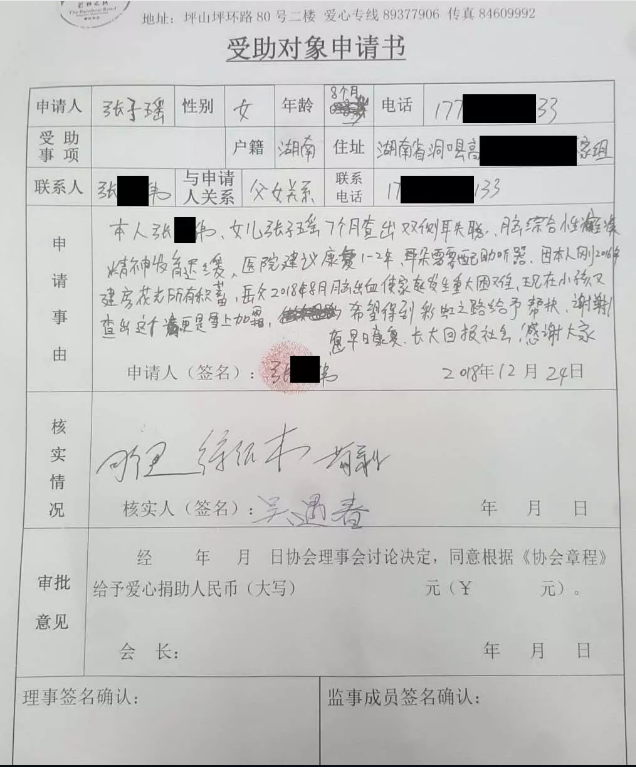 地址：坪山坪环路80号二楼 爱心专线 89377906 传真 84609992
受助对象申请书
申请人 张子瑶 性别 女 年龄 8个月 电话 177 33
受助事项 户籍 湖南 住址 湖南省洞口县高 家组
联系人 张 伟 与申请人关系 父女关系 联系电话 17 133
申请事由
本人张 伟、女儿张子瑶7个月查出双侧耳失聪、脑综合性
精神发育迟缓、医院建议康复1-2年、耳朵需要配助听器、因本人刚2018年
建房花光所有积蓄，岳父2018年8月脑出血使家庭发生重大困难，现在小孩又
查出这个病更是雪上加霜，希望得到彩虹之路给予帮扶、谢谢!
愿早日康复、长大回报社会，感谢大家
申请人（签名）：张 伟 2018年12月24日
核实情况
核实人（签名）：吴遇春 年 月 日
审批意见
经 年 月 日协会理事会讨论决定，同意根据《协会章程》
给予爱心捐助人民币（大写） 元（￥ 元）。
会 长： 年 月 日
理事签名确认： 监事成员签名确认：